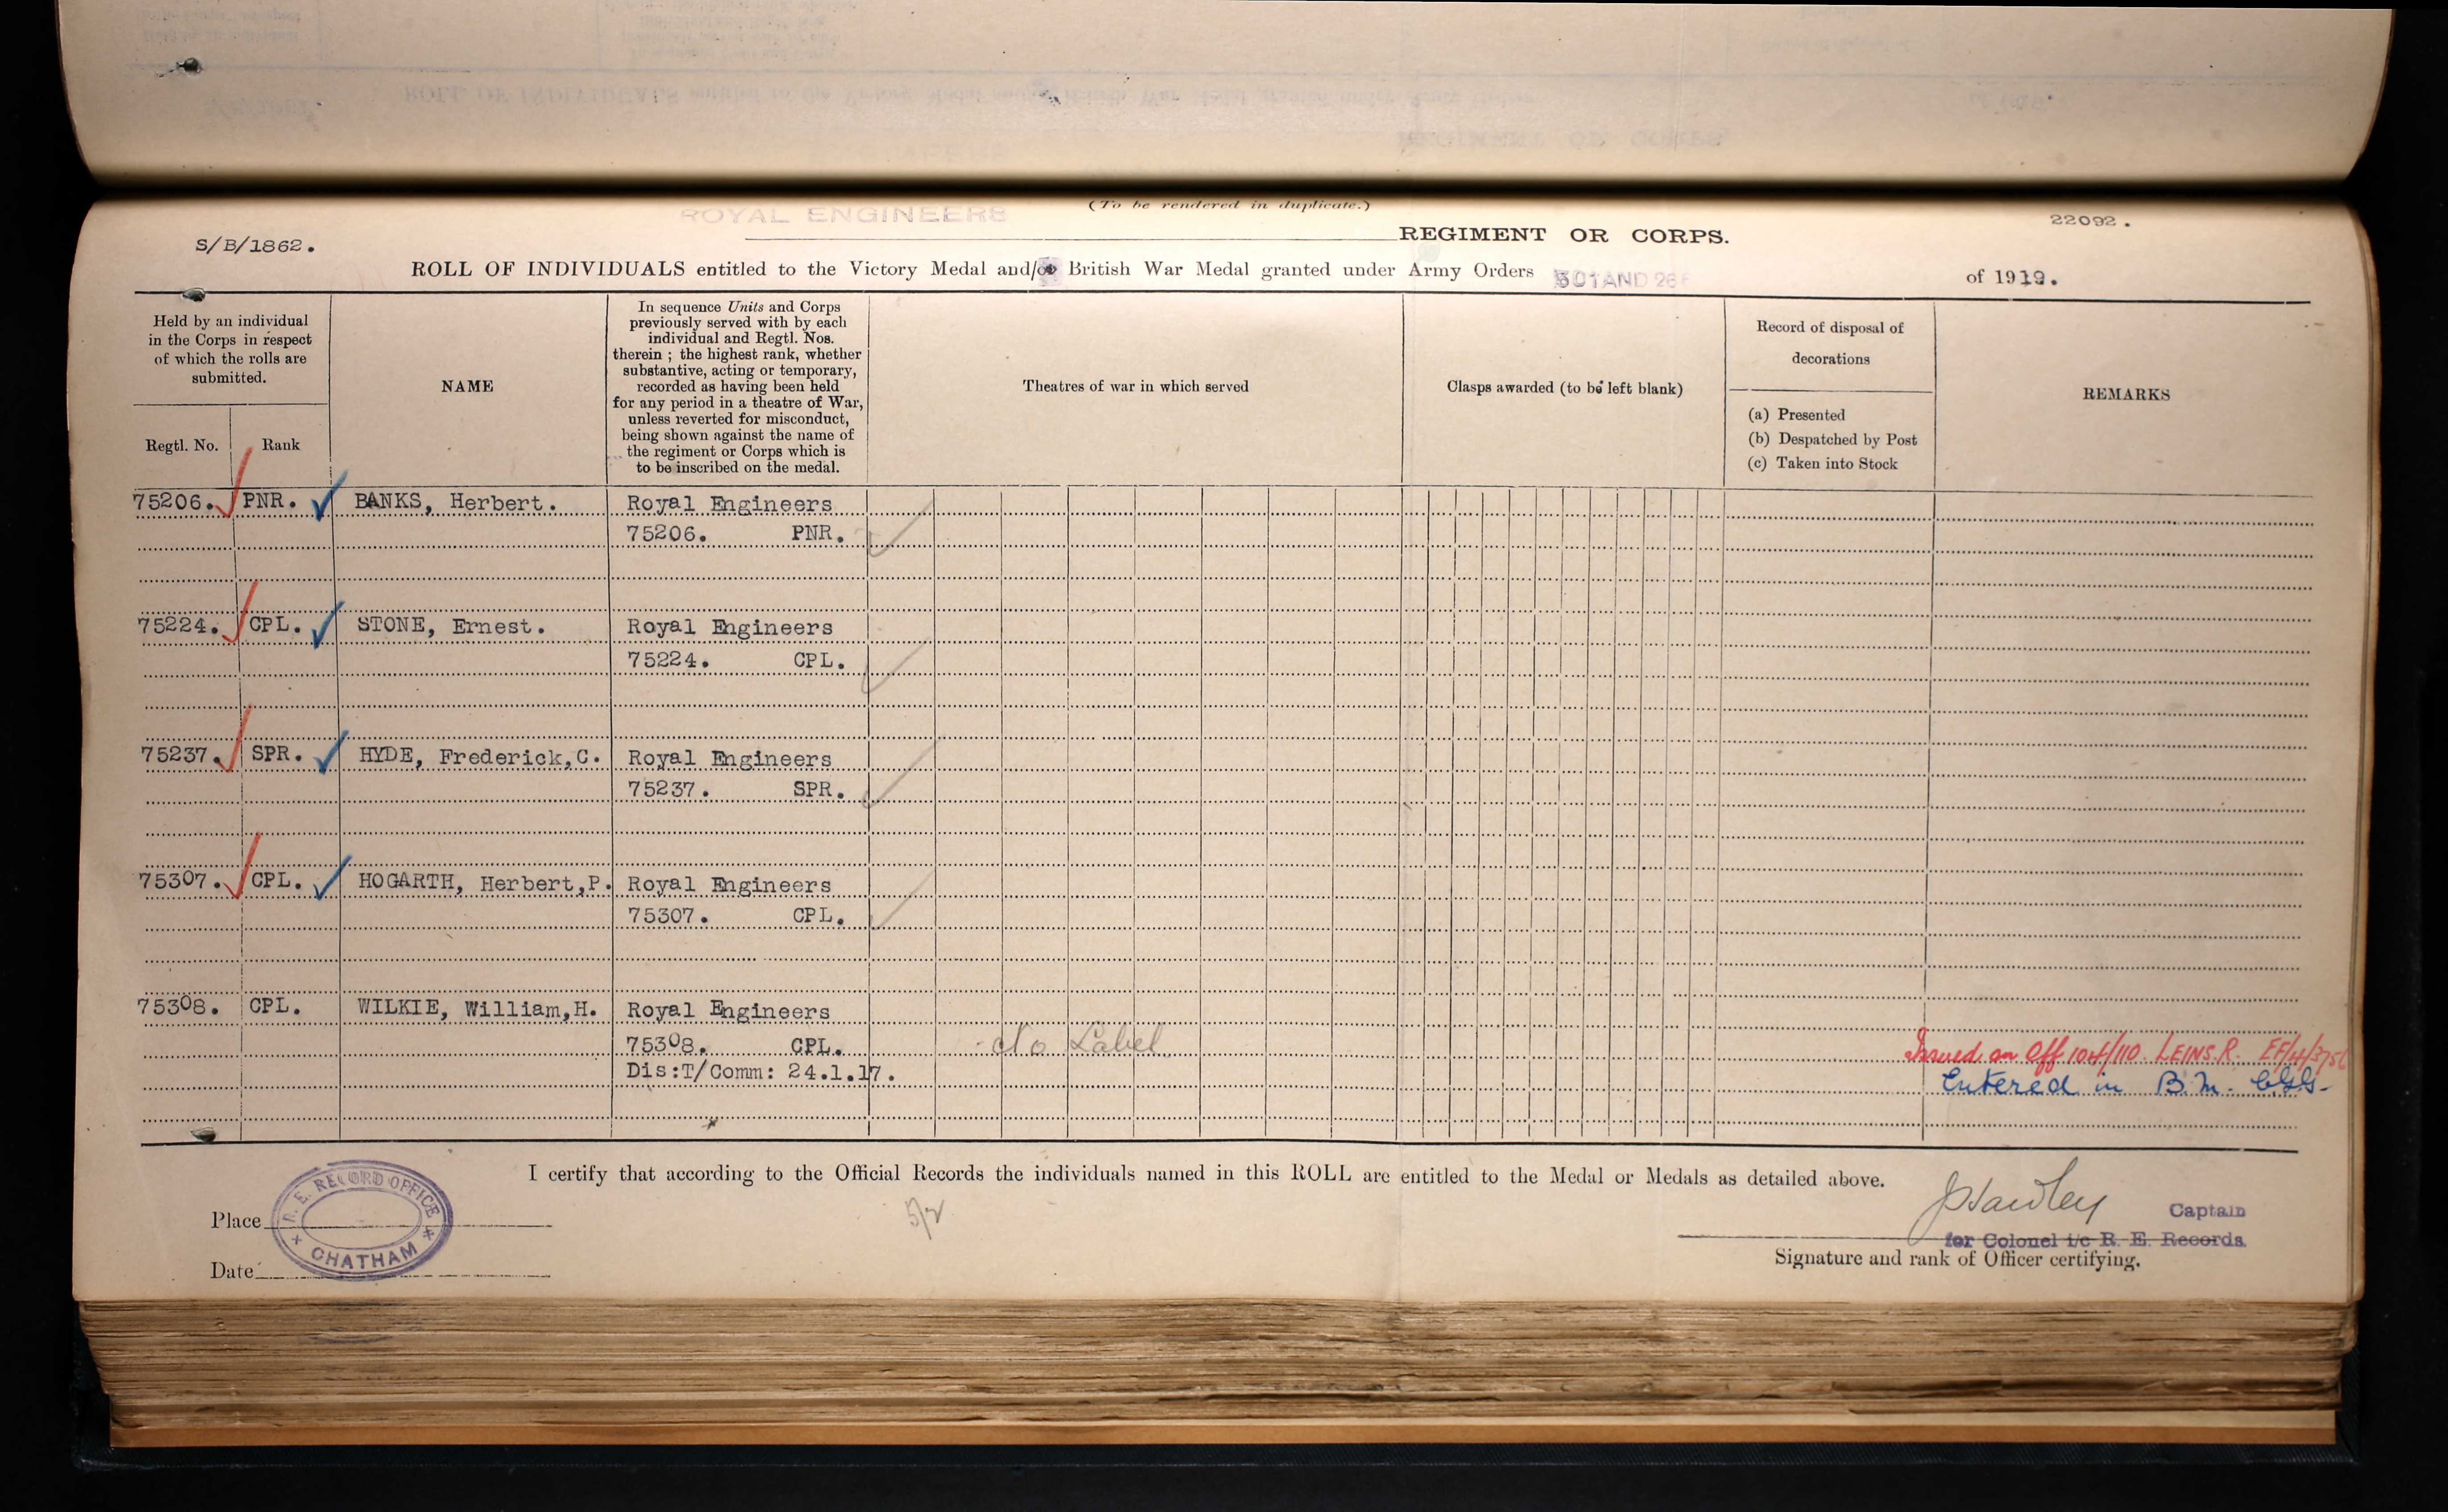 ROYAL ENGINEERS
(To be rendered in duplicate.)
22092.
S/B/1862.
REGIMENT OR CORPS.
ROLL OF INDIVIDUALS entitled to the Victory Medal and/or British War Medal granted under Army Orders 301 AND 266 of 1919.
Held by an individual
in the Corps in respect
of which the rolls are
submitted.
Regtl. No.
Rank
NAME
In sequence Units and Corps
previously served with by each
individual and Regtl. Nos.
therein ; the highest rank, whether
substantive, acting or temporary,
recorded as having been held
for any period in a theatre of War,
unless reverted for misconduct,
being shown against the name of
the regiment or Corps which is
to be inscribed on the medal.
Theatres of war in which served
Clasps awarded (to be left blank)
Record of disposal of
decorations
(a) Presented
(b) Despatched by Post
(c) Taken into Stock
REMARKS
75206. PNR. BANKS, Herbert. Royal Engineers
75206. PNR.
75224. CPL. STONE, Ernest. Royal Engineers
75224. CPL.
75237. SPR. HYDE, Frederick,C. Royal Engineers
75237. SPR.
75307. CPL. HOGARTH, Herbert,P. Royal Engineers
75307. CPL.
75308. CPL. WILKIE, William,H. Royal Engineers
75308. CPL. No Label Issued on Off 104/110 LEINS.R.
Dis:T/Comm: 24.1.17. Entered in B.M.
I certify that according to the Official Records the individuals named in this ROLL are entitled to the Medal or Medals as detailed above.
R. E. RECORD OFFICE
CHATHAM
Place
Date
Captain
for Colonel i/c R. E. Records.
Signature and rank of Officer certifying.